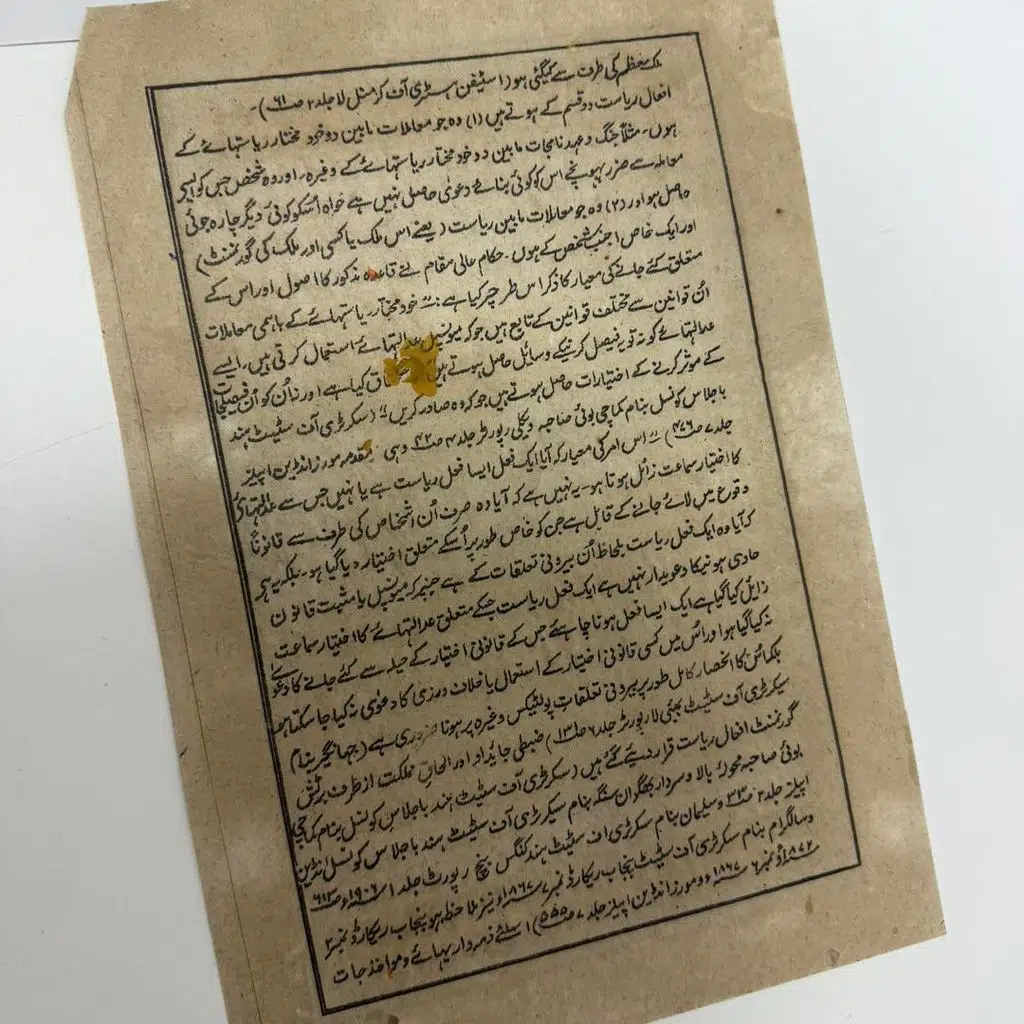 ملک معظم کی طرف سے کیگئی ہو (اسٹیفن ہسٹری آف کرمنل لا جلد ۲ صـ ۶۱)۔
افعال ریاست دو قسم کے ہوتے ہیں (۱) وہ جو معاملات مابین دو خود مختار ریاستہائے کے
ہوں۔ مثلاً جنگ و عہد نامجات مابین دو خود مختار ریاستہائے کے وغیرہ۔ اور وہ شخص جس کو ایسے
معاملہ سے ضرر پہونچے اس کو کوئی بنائے دعویٰ حاصل نہیں ہے خواہ اُسکو کوئی دیگر چارہ جوئی
حاصل ہو اور (۲) وہ جو معاملات مابین ریاست (یعنے اس ملک یا کسی اور ملک کی گورنمنٹ)
اور ایک خاص اجنب شخص کے ہوں۔ حکام عالی مقام نے قاعدہ مذکور کا اصول اور اس کے
متعلق کئے جانے کی معیار کا ذکر اس طرح پر کیا ہے:۔ "خود مختار ریاستہائے کے باہمی معاملات
اُن قوانین سے مختلف قوانین کے تابع ہیں جو کہ میونسپل عدالتہائے استعمال کرتی ہیں۔ ایسے
عدالتہائے کو نہ تو یہ فیصل کرنیکے وسائل حاصل ہوتے ہیں کیا ہے اور نہ اُن کو اُن فیصلجات
کے موثر کرنے کے اختیارات حاصل ہوتے ہیں جو کہ وہ صادر کریں" (سکرٹری آف سٹیٹ ہند
باجلاس کونسل بنام کماچی بوئی صاحبہ ویکلی رپورٹر جلد ۴ صـ ۴۲ وہی مقدمہ مورز انڈین اپیلز
جلد ۷ صـ ۴۷۶) "اس امر کی معیار کہ آیا ایک فعل ایسا فعل ریاست ہے یا نہیں جس سے عدالتہائے
کا اختیار سماعت زائل ہوتا ہو۔ یہ نہیں ہے کہ آیا وہ صرف اُن اشخاص کی طرف سے قانوناً
وقوع میں لائے جانے کے قابل ہے جن کو خاص طور پر اُسکے متعلق اختیار دیا گیا ہو۔ بلکہ یہ ہے
کہ آیا وہ ایک فعل ریاست بلحاظ اُن بیرونی تعلقات کے ہے جنپر کہ میونسپل یا مثبت قانون
حاوی ہونیکا دعویدار نہیں ہے ایک فعل ریاست جسکے متعلق عدالتہائے کا اختیار سماعت
زائل کیا گیا ہے ایک ایسا فعل ہونا چاہئے جس کے قانونی اختیار کے حیلہ سے کئے جانے کا دعویٰ
نہ کیا گیا ہو اور اُس میں کسی قانونی اختیار کے استعمال یا خلاف ورزی کا دعویٰ نہ کیا جا سکتا ہو
بلکہ اُس کا انحصار کامل طور پر بیرونی تعلقات پولیٹیکس وغیرہ پر ہونا ضروری ہے (جہانگیر بنام
سیکرٹری آف سٹیٹ بمبئی لا رپورٹر جلد ۶ صـ ۱۳۱) ضبطی جایداد اور الحاق مملکت از طرف برٹش
گورنمنٹ افعال ریاست قرار دیئے گئے ہیں (سکرٹری آف سٹیٹ ہند باجلاس کونسل بنام کماچی
بوئی صاحبہ محولہ بالا و سردار بھگوان سنگہ بنام سیکرٹری آف سٹیٹ ہند باجلاس کونسل انڈین
اپیلز جلد ۲ صـ ۳۳ و سلیمان بنام سکرٹری آف سٹیٹ ہند کنگس بنچ رپورٹ جلد ۱ سنہ ۱۹۰۶ء صـ ۶۱۳
و سالگرام بنام سکرٹری آف سٹیٹ پنجاب ریکارڈ نمبر ۷ سنہ ۱۸۶۷ء نیز ملاحظہ ہو پنجاب ریکارڈ نمبر ۲
سنہ ۱۸۷۲ء و نمبر ۶ سنہ ۱۸۶۷ء و مورز انڈین اپیلز جلد ۷ صـ ۵۵۵) اسلئے ذمہ داریہائے و مواخذجات